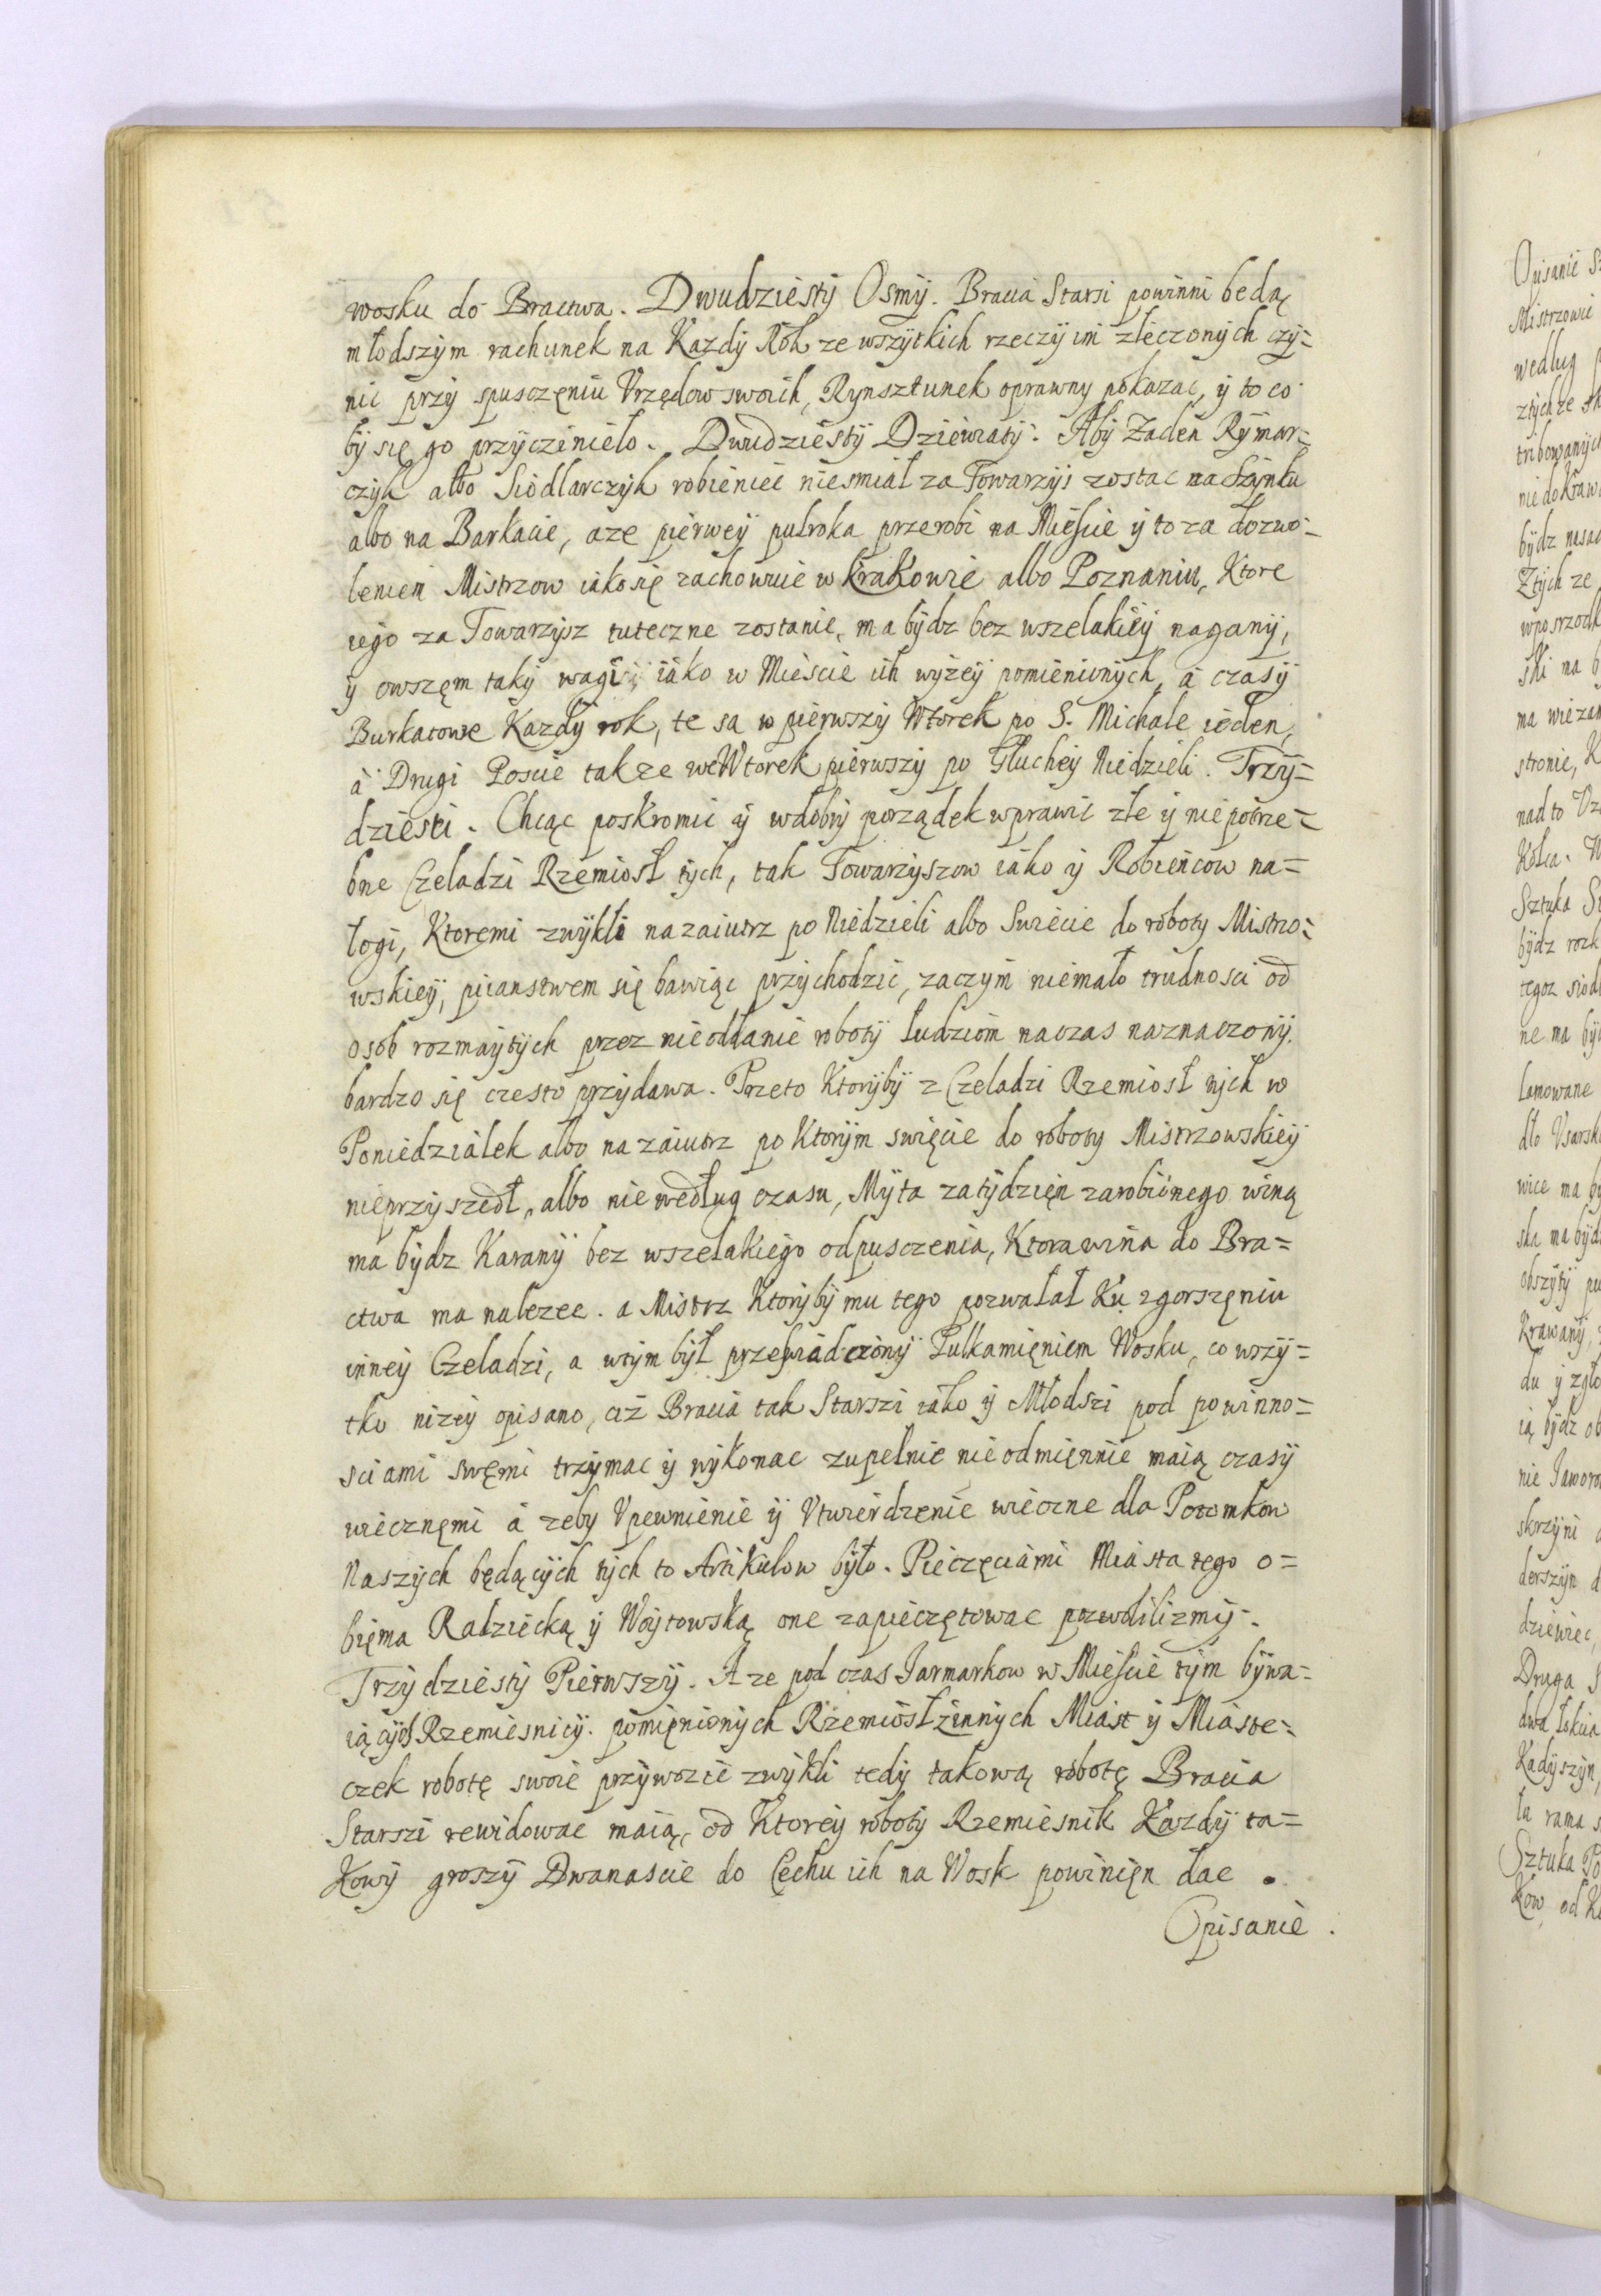 wosku do Bractwa. Dwudziestÿ Osmÿ. Bracia Starsi powinni bedą
młodszÿm rachunek na Kazdÿ Rok ze wszÿtkich rzeczÿ im zleczonÿch czÿ=
nic przÿ spusczęniu Vrzędow swoich, Rynsztunek oprawny pokazac, ÿ to co
bÿ się go przÿczÿnieło. Dwudziestÿ Dziewiatÿ. Abÿ Zaden Rÿmar=
czÿk albo Siodlarczÿk robieniec niesmiał za Towarzÿs zostac na Szÿnku
albo na Barkacie, aze pierweÿ pułroka przerobi na Miescie ÿ to za dozwo=
leniem Mistrzow iako się zachowuie w Krakowie albo Poznaniu, Ktore
iego za Towarzÿsz tuteczne zostanie, ma bÿdz bez wszelakieÿ naganÿ,
ÿ owszęm takÿ wagi iako w Miescie ich wÿżeÿ pomienionÿch, a czasÿ
Burkatowe Kazdÿ rok, te sa w pierwszÿ Wtorek po S. Michale ieden,
a Drugi Poscie takze we Wtorek pierwszÿ po Głucheÿ Niedzieli. Trzÿ=
dziesti. Chcąc poskromic ÿ w dobrÿ porządek wprawic złe ÿ niepotrze=
bne Czeladzi Rzemiosł tÿch, tak Towarzÿszow iako ÿ Robieńcow na=
łogi, Ktoremi zwÿkli nazaiutrz po Niedzieli albo Swiecie do robotÿ Mistrzo=
wskieÿ, piianstwem się bawiąc przÿchodzic, zaczÿm niemało trudnosci od
osob rozmaÿtÿch przez nieoddanie robotÿ ludziom na czas naznaczonÿ.
bardzo się czesto przÿdawa. Przeto Ktorÿbÿ z Czeladzi Rzemiosł tÿch w
Poniedziałek albo nazaiutrz po Ktorÿm swięcie do robotÿ Mistrzowskieÿ
nieprzÿszedł, albo niewedług czasu, Mÿta za tÿdzięn zarobionego winą
ma bÿdz Karanÿ bez wszelakiego odpusczenia, Ktora wina do Bra=
ctwa ma nalezec. a Mistrz Ktorÿbÿ mu tego pozwalał Ku zgorszęniu
inneÿ Czeladzi, a wtÿm bÿł przeswiadczonÿ Pułkamięniem Wosku, co wszÿ=
tko nizeÿ opisano, ciż Bracia tak Starszi iako ÿ Młodszi pod powinno=
sciami swęmi trzÿmac ÿ wÿkonac zupełnie nieodmięnnie maią czasÿ
wiecznęmi a zeby Vpewnienie ÿ Vtwierdzenie wieczne dla Potomkow
Naszÿch będącÿch tÿch to Artikułow bÿło. Pieczęciami Miasta tego o=
bięma Radziecką ÿ Woÿtowską one zapieczętowac pozwolilizmÿ.
Trzÿdziestÿ Pierwszÿ. A ze pod czas Jarmarkow w Miescie tÿm bÿwa=
iącÿch Rzemiesnicÿ pomięnionÿch Rzemiosł z innÿch Miast ÿ Miaste=
czek robotę swoie przÿwozic zwÿkli tedÿ takową robotę Bracia
Starszi rewidowac maią, od Ktoreÿ robotÿ Rzemiesnik Kazdÿ ta=
Kowÿ groszÿ Dwanascie do Cechu ich na Wosk powinięn dac.
Opisanie.